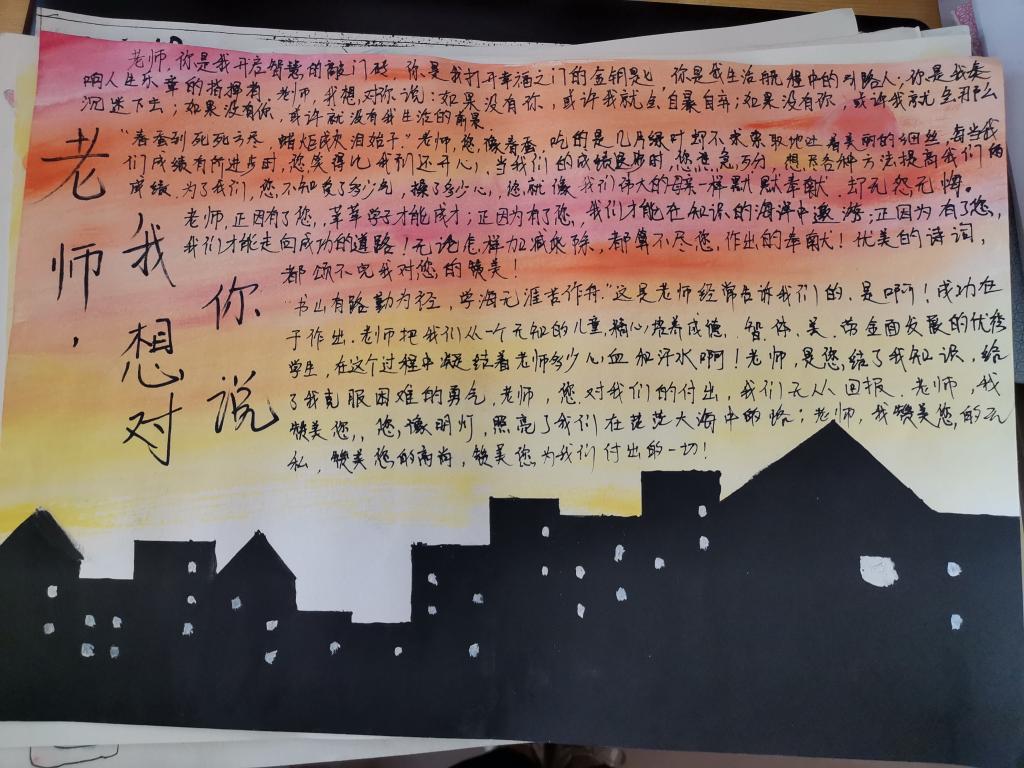 老师，我想对你说
老师，你是我开启智慧的敲门砖，你是我打开幸福之门的金钥匙，你是我生活航想中的引路人，你是我奏
响人生乐章的指挥者，老师，我想对你说：如果没有你，或许我就会自暴自弃；如果没有你，或许我就会那么
沉迷下去；如果没有你，或许就没有我生活的前景
"春蚕到死丝方尽，蜡炬成灰泪始干"老师，您像春蚕，吃的是几片绿叶却不求索取地吐着美丽的细丝，每当我
们成绩有所进步时，您笑得比我们还开心，当我们的成绩退步时，您焦急万分，想尽各种方法提高我们的
成绩，为了我们，您不知受了多少气，操了多少心，您就像我们伟大的母亲一样默默奉献，却无怨无悔。
老师，正因有了您，莘莘学子才能成才；正因为有了您，我们才能在知识的海洋中遨游；正因为有了您，
我们才能走向成功的道路！无论怎样加减乘除，都算不尽您作出的奉献！优美的诗词，
都颂不完我对您的赞美！
"书山有路勤为径，学海无涯苦作舟。"这是老师经常告诉我们的，是啊！成功在
于作出，老师把我们从一个无知的儿童，精心培养成德、智、体、美、劳全面发展的优秀
学生，在这个过程中凝结着老师多少心血和汗水啊！老师，是您给了我知识，给
了我克服困难的勇气，老师，您对我们的付出，我们无从回报，老师，我
赞美您，，您像明灯，照亮了我们在茫茫大海中的路；老师，我赞美您的无
私，赞美您的高尚，赞美您为我们付出的一切！